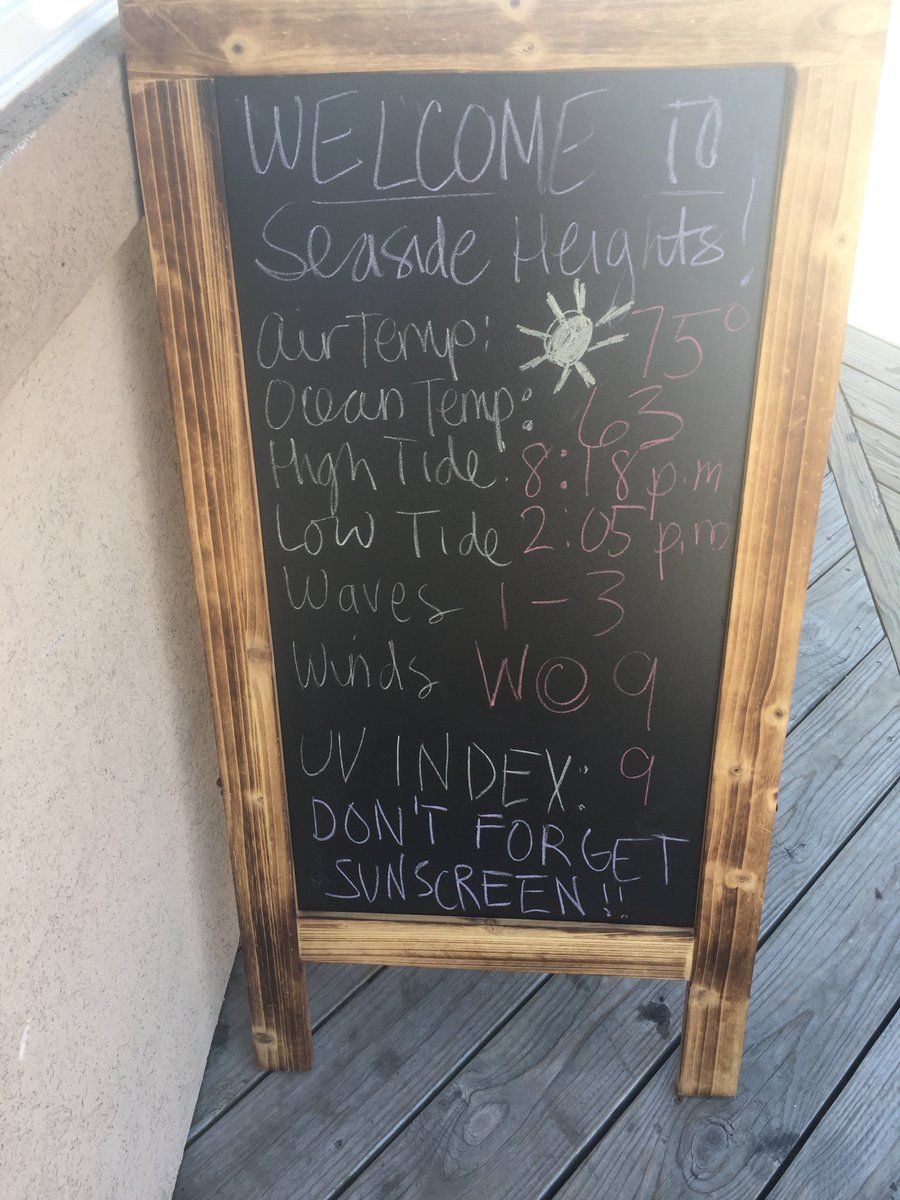 WELCOME TO
Seaside Heights!
Air Temp: 75°
Ocean Temp: 63
High Tide: 8:18 p.m
Low Tide 2:05 p.m
Waves 1-3
Winds W@ 9
UV INDEX: 9
DON'T FORGET
SUNSCREEN!!